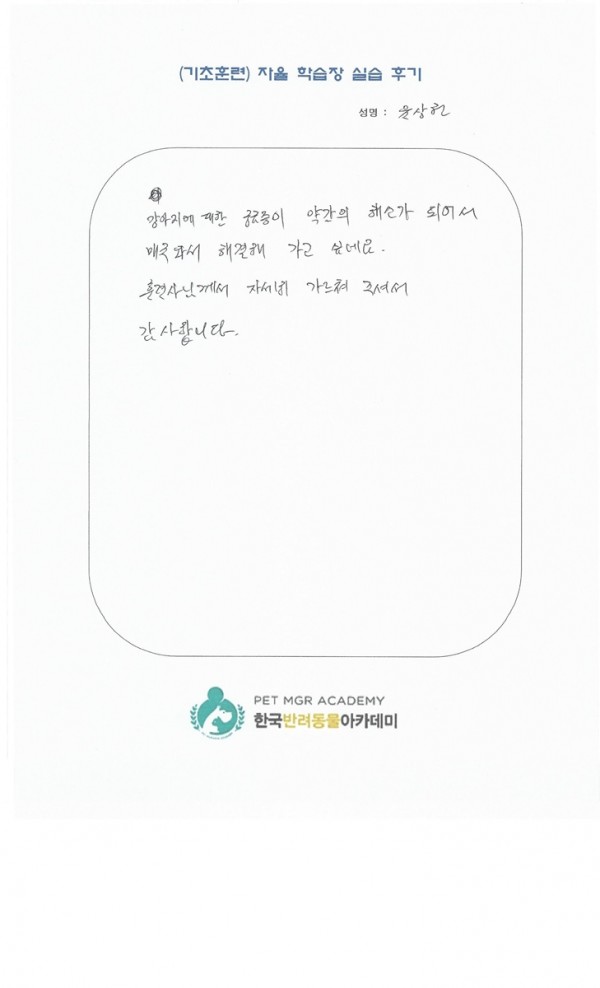 (기초훈련) 자율 학습장 실습 후기
성명 : 윤상헌
강아지에 대한 궁금증이 약간의 해소가 되어서
매주 와서 해결해 가고 싶네요.
훈련사님께서 자세히 가르쳐 주셔서
감사합니다.
PET MGR ACADEMY
한국반려동물아카데미